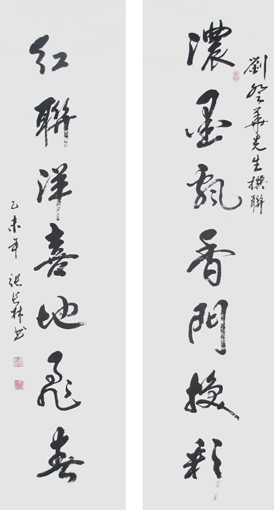 劉登華先生撰聯
濃墨飄香門換彩
紅聯洋喜地飛春
乙未年 張長林書